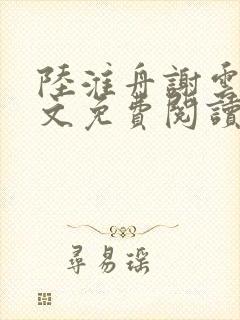 陸淮舟謝雲
文免費閱讀
尋易瑶